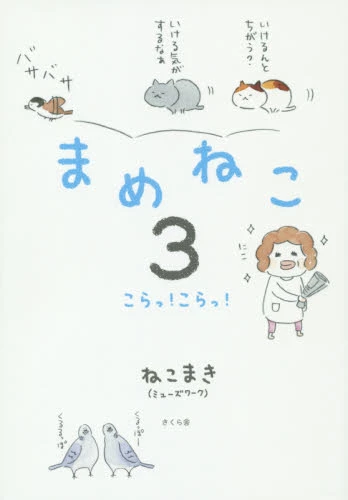 いけるんと
ちがう？
いける気が
するなぁ
バサバサ
まめねこ
3
こらっ！こらっ！
にこ
ねこまき
（ミューズワーク）
さくら舎
くるっぽー
くるるっぽ